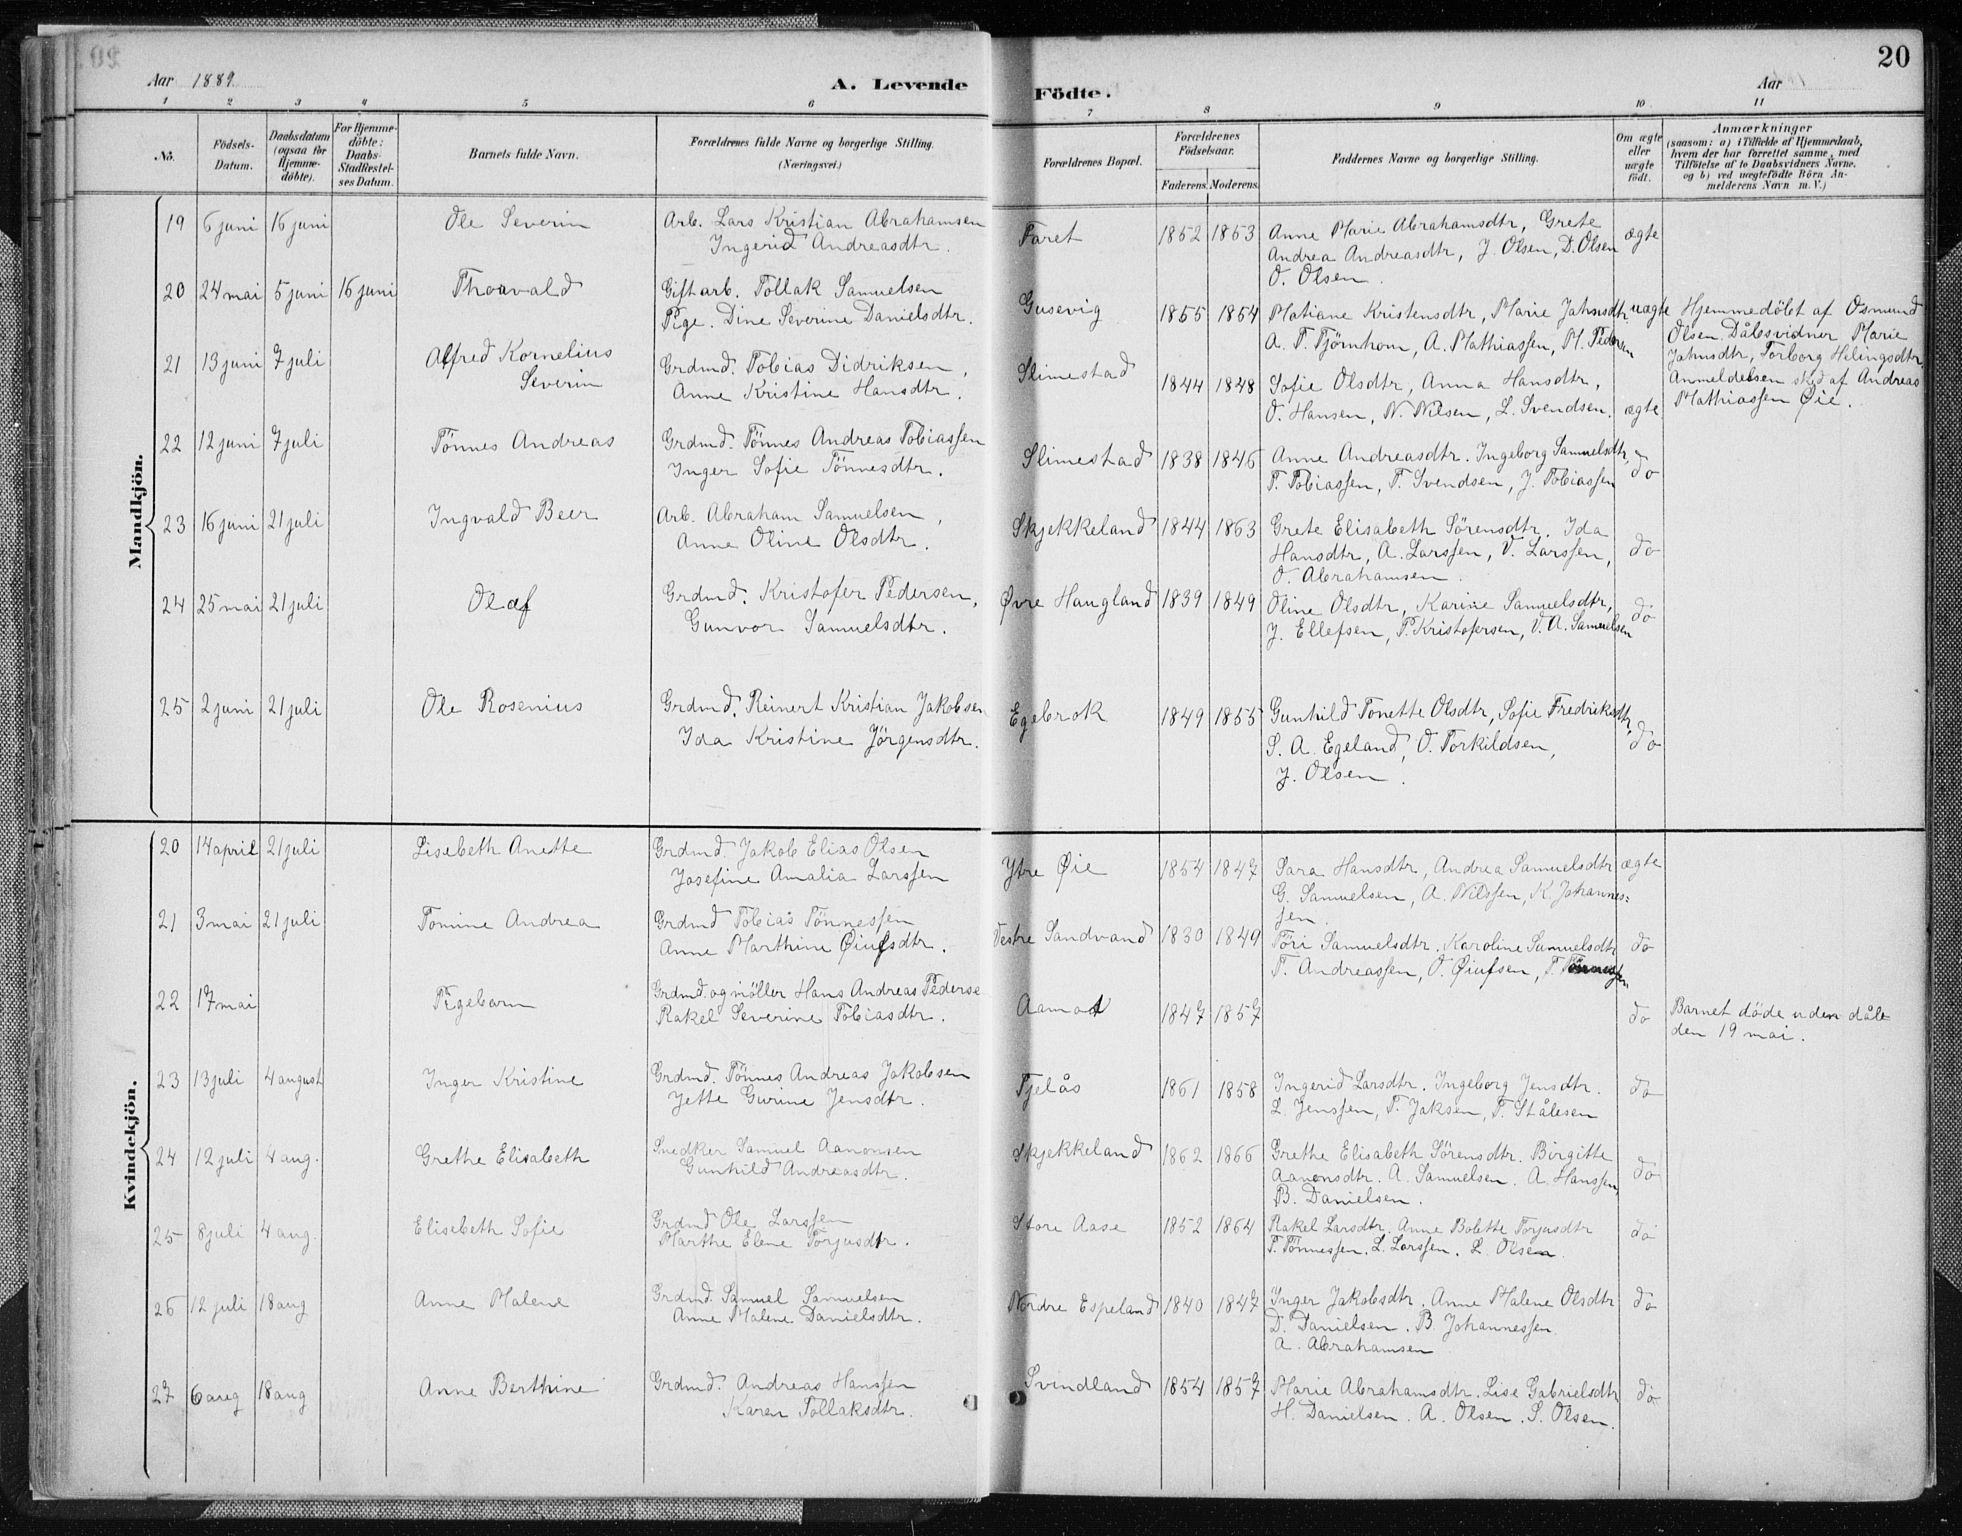 20
Aar 1889.
A. Levende Födte.
Aar
1 2 3 4 5 6 7 8 9 10 11
No. Födsels-Datum. Daabsdatum (ogsaa for Hjemme-döbte). For Hjemme-döbte: Daabs-Stadfæstel-ses Datum. Barnets fulde Navn. Forældrenes fulde Navne og borgerlige Stilling. (Næringsvei.) Forældrenes Bopæl. Forældrenes Födselsaar. Faderens. Moderens. Faddernes Navne og borgerlige Stilling. Om ægte eller uægte födt. Anmærkninger (saasom: a) i Tilfælde af Hjemmedaab, hvem der har forrettet samme, med Tilföielse af to Daabsvidners Navne, og b) ved uægtefödte Börn An-melderens Navn m. V.)
Mandkjön.
19 6 juni 16 juni Ole Severin Arb. Lars Kristian Abrahamsen Faret 1852 1853 Anne Marie Abrahamsdtr, Grete ægte
Ingerid Andreasdtr. Andrea Andreasdtr, J. Olsen, D. Olsen
O. Olsen.
20 24 mai 5 juni 16 juni Thorvald Gift arb. Tollak Samuelsen Gusevig 1855 1864 Matiane Kristensdtr, Marie Jahnsdtr, uægte Hjemmedöbt af Osmund
Pige. Dine Severine Danielsdtr. A. T. Tjörnhom, A. Mathiassen, M. Pedersen Olsen. Dåbsvidner Marie
Jahnsdtr, Torborg Helingsdtr.
21 13 juni 7 juli Alfred Kornelius Grdmd. Tobias Didriksen, Slimestad 1844 1848 Sofie Olsdtr, Anna Hansdtr, Anmeldelsen sked af Andreas
Severin Anne Kristine Hansdtr. O. Hansen, N. Nilsen, L. Svendsen. ægte Mathiassen Øie.
22 12 juni 7 juli Tönnes Andreas Grdmd. Tönnes Andreas Tobiassen Slimestad 1838 1846 Anne Andreasdtr. Ingeborg Samuelsdtr, do
Inger Sofie Tönnesdtr. T. Tobiassen, T. Svendsen, J. Tobiassen
23 16 juni 21 juli Ingvald Beer Arb. Abraham Samuelsen, Skjekkeland 1844 1863 Grete Elisabeth Sörensdtr. Ida
Anne Oline Olsdtr. Hansdtr, A. Larssen, V. Larssen, do
O. Abrahamsen.
24 25 mai 21 juli Olaf Grdmd. Kristofer Pedersen, Øvre Haugland 1839 1849 Oline Olsdtr, Karine Samuelsdtr, do
Gunvor Samuelsdtr. J. Ellefsen, P. Kristofersen, V. A. Samuelsen
25 2 juni 21 juli Ole Rosenius Grdmd. Reinert Kristian Jakobsen Egebrok 1849 1855 Gunhild Tonette Olsdtr, Sofie Fredriksdtr, do
Ida Kristine Jörgensdtr. S. A. Egeland, O. Torkildsen,
J. Olsen.
Kvindekjön.
20 14 april 21 juli Lisebeth Anette Grdmd. Jakob Elias Olsen Ytre Øie 1854 1847 Sara Hansdtr, Andrea Samuelsdtr ægte
Josefine Amalia Larssen G. Samuelsen, A. Nilssen, K. Johannes-
sen.
21 3 mai 21 juli Tomine Andrea Grdmd Tobias Tönnessen Vestre Sandvand 1830 1849 Töri Samuelsdtr. Karoline Samuelsdtr do
Anne Marthine Øiufsdtr. T. Andreassen, O. Øiufsen, T. Tönnessen
22 17 mai Pigebarn Grdmd. og möller Hans Andreas Pederse Aamot 1847 1857 do Barnet döde uden dåb
Rakel Severine Tobiasdtr. den 19 mai.
23 13 juli 4 august Inger Kristine Grdmd. Tönnes Andreas Jakobsen Tjelås 1861 1858 Ingerid Larsdtr. Ingeborg Jensdtr. do
Jette Gurine Jensdtr. L. Jenssen, T. Jaksen, T. Stålesen
24 12 juli 4 aug. Grethe Elisabeth Snedker Samuel Aanonsen Skjekkeland 1862 1866 Grethe Elisabeth Sörensdtr. Birgitte do
Gunhild Andreasdtr. Aanonsdtr. A. Samuelsen. A. Hanssen,
B. Danielsen.
25 8 juli 4 aug. Elisebeth Sofie Grdmd Ole Larssen Store Aase 1852 1864 Rakel Larsdtr. Anne Bolette Torjusdtr do
Marthe Elene Torjusdtr. T. Tönnessen. L. Larssen. L. Olsen.
26 12 juli 18 aug Anne Malene Grdmd. Samuel Samuelsen Nordre Espeland 1840 1847 Inger Jakobsdtr. Anne Malene Olsdtr do
Anne Malene Danielsdtr. D. Danielsen. B. Johannessen.
A. Abrahamsen
27 6 aug 18 aug Anne Berthine Grdmd. Andreas Hanssen Svindland 1854 1857 Marie Abrahamsdtr. Lise Gabrielsdtr do
Karen Tollaksdtr. H. Danielsen. A. Olsen. S. Olsen.